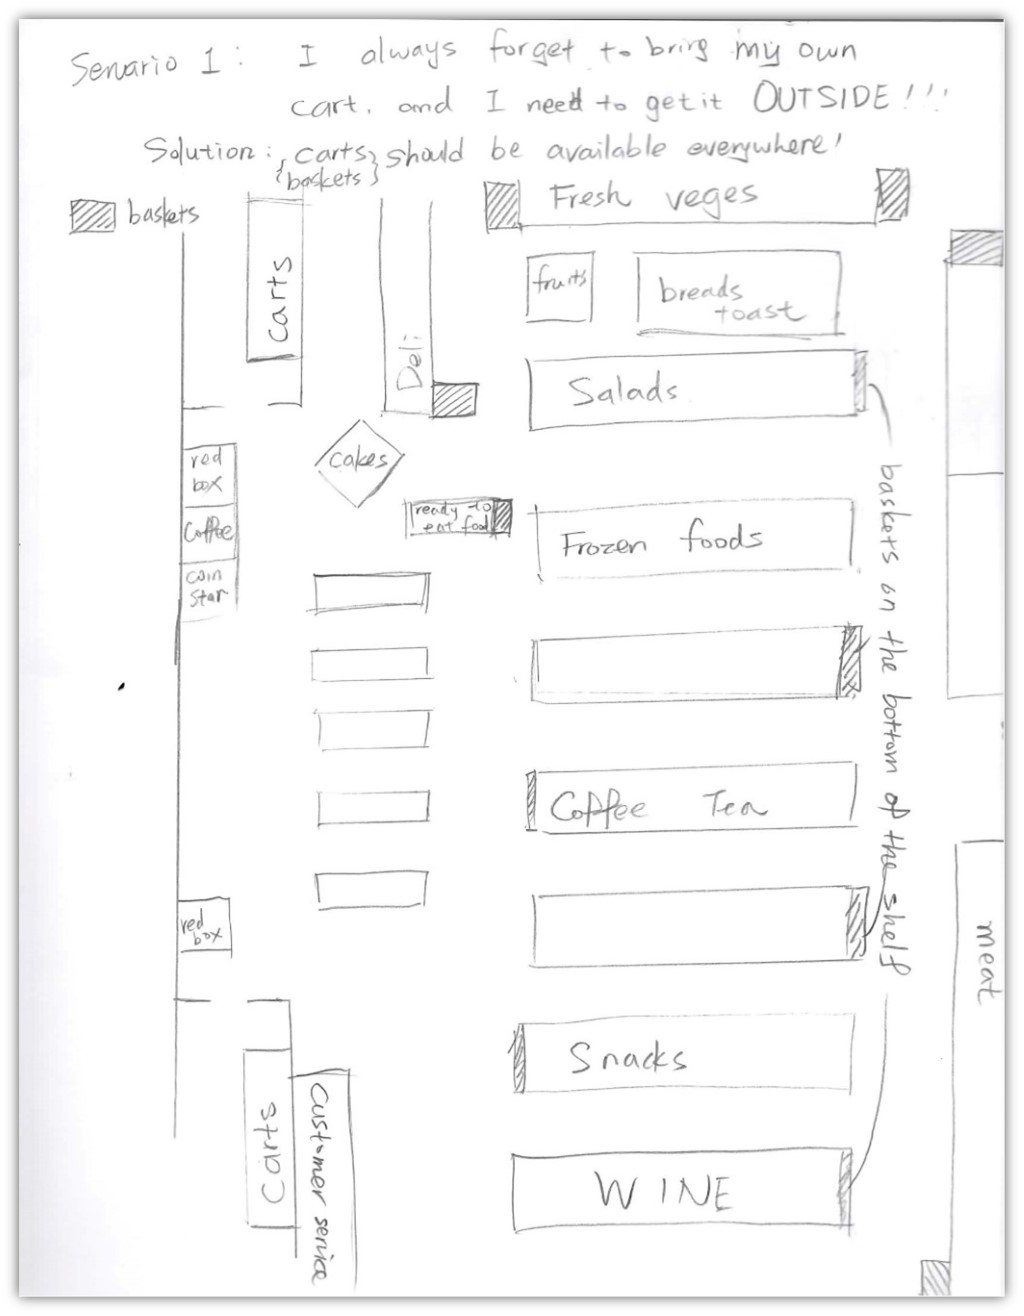 Senario 1: I always forget to bring my own
cart. and I need to get it OUTSIDE!!!
Solution: {carts} should be available everywhere!
{baskets}
baskets
Carts
Deli
Fresh veges
fruits
breads
toast
Salads
cakes
red
box
Coffee
coin
star
ready to
eat food
Frozen foods
baskets on the bottom of the shelf
Coffee Tea
red
box
meat
Snacks
Carts
Customer service
WINE